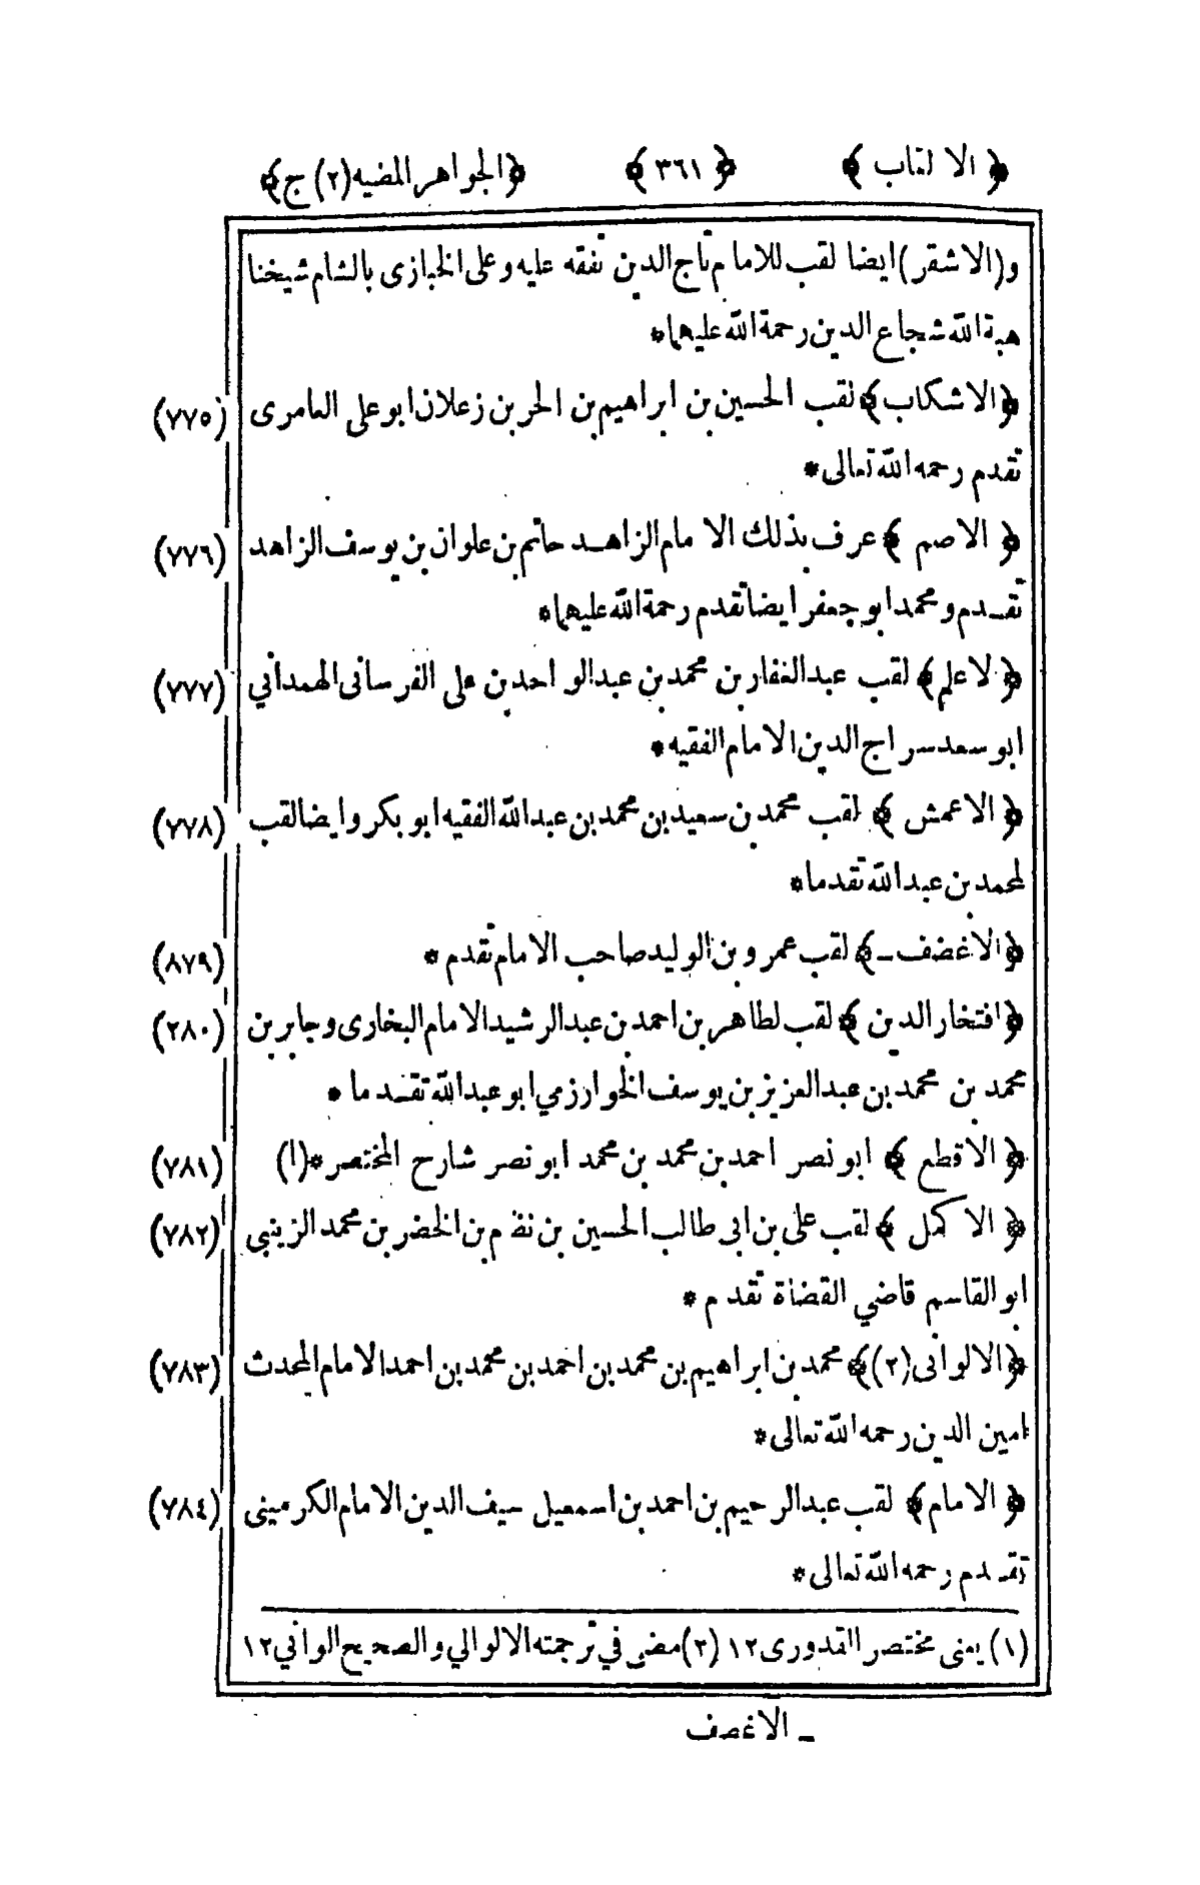 ﴿ الالقاب ﴾ ﴿ ٣٦١ ﴾ ﴿الجواهر المضيه (٢) ج﴾
و(الاشقر) ايضا لقب للامام تاج الدين تفقه عليه وعلى الخبازى بالشام شيخنا
هبة الله شجاع الدين رحمة الله عليهما*
﴿الاشكاب﴾ لقب الحسين بن ابراهيم بن الحر بن زعلان ابو على العامرى (٧٧٥)
تقدم رحمه الله تعالى*
﴿ الاصم ﴾ عرف بذلك الامام الزاهد حاتم بن علوان بن يوسف الزاهد (٧٧٦)
تقدم ومحمد ابو جعفر ايضا تقدم رحمة الله عليهما*
﴿لاعلم﴾ لقب عبدالغفار بن محمد بن عبدالواحد بن على الفرسانى الهمدانى (٧٧٧)
ابو سعد سراج الدين الامام الفقيه*
﴿ الاعمش ﴾ لقب محمد بن سعيد بن محمد بن عبدالله الفقيه ابو بكر وايضا لقب (٧٧٨)
لمحمد بن عبدالله تقدما*
﴿الاغضف-﴾ لقب عمرو بن الوليد صاحب الامام تقدم* (٨٧٩)
﴿افتخار الدين﴾ لقب لطاهر بن احمد بن عبدالرشيد الامام البخارى وجابر بن (٢٨٠)
محمد بن محمد بن عبدالعزيز بن يوسف الخوارزمي ابو عبدالله تقدما*
﴿ الاقطع ﴾ ابو نصر احمد بن محمد بن محمد ابو نصر شارح المختصر*(١) (٧٨١)
﴿ الاكمل ﴾ لقب على بن ابى طالب الحسين بن نظم بن الخضر بن محمد الزينبى (٧٨٢)
ابو القاسم قاضي القضاة تقدم*
﴿الالوانى(٢)﴾ محمد بن ابراهيم بن محمد بن احمد بن محمد بن احمد الامام المحدث (٧٨٣)
امين الدين رحمه الله تعالى*
﴿ الامام﴾ لقب عبدالرحيم بن احمد بن اسمعيل سيف الدين الامام الكرمينى (٧٨٤)
تقدم رحمه الله تعالى*
(١) يعنى مختصر القدورى ١٢ (٢) مضى في ترجمته الالوالي والصحيح الواني ١٢
- الاغصف